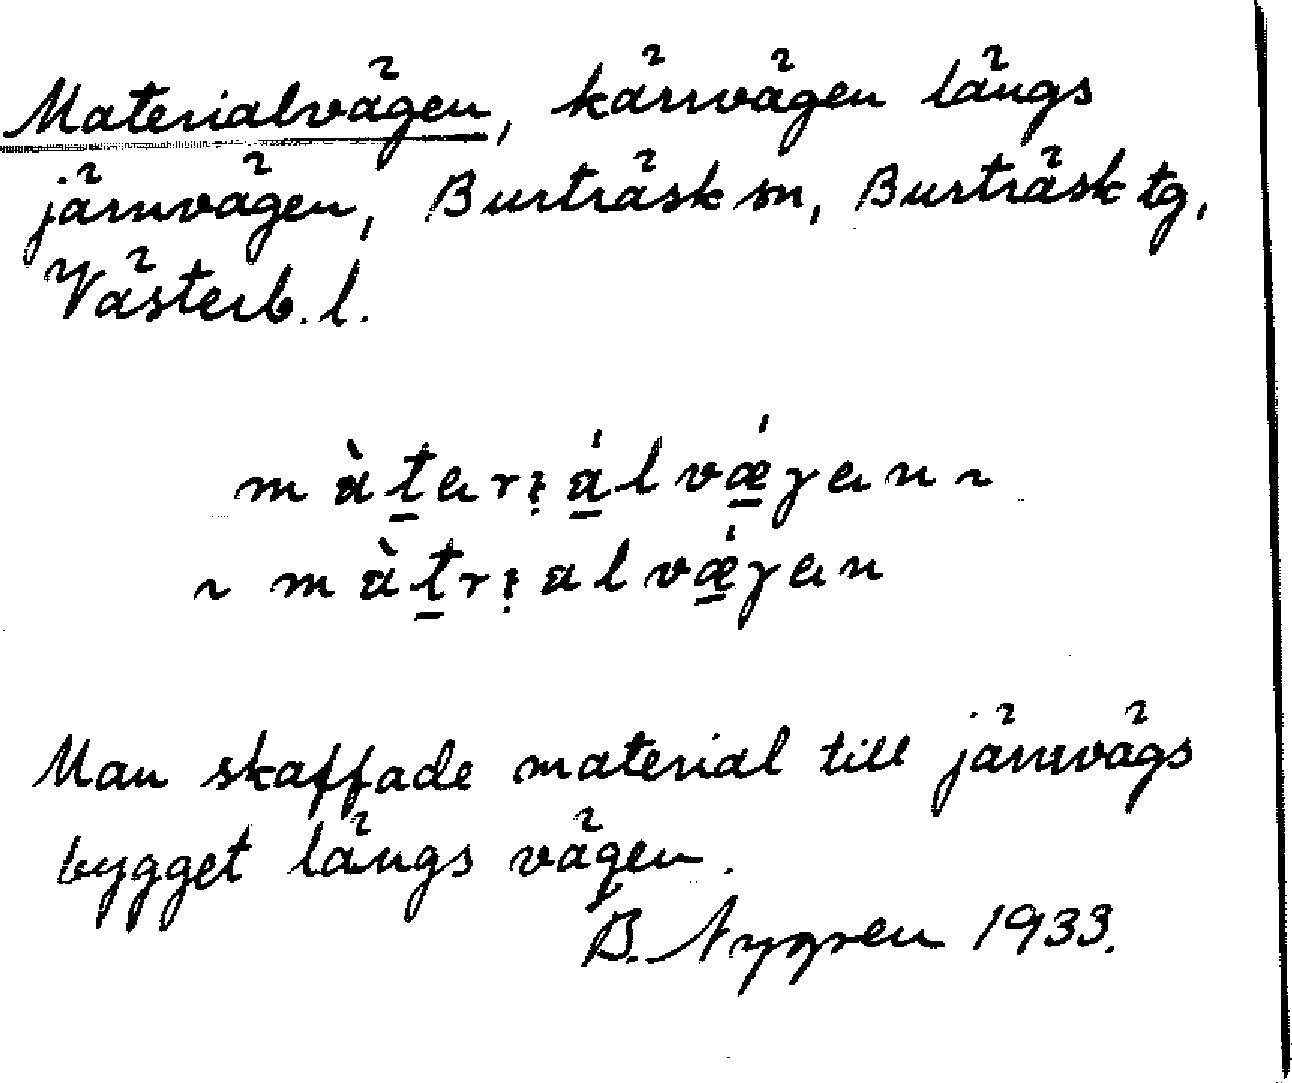 Materialvägen, kärrvägen längs
järnvägen, Burträsk sn, Burträsk tg,
Västerb. l.
Man skaffade material till järnvägs
bygget längs vägen.
B. Nygren 1933.